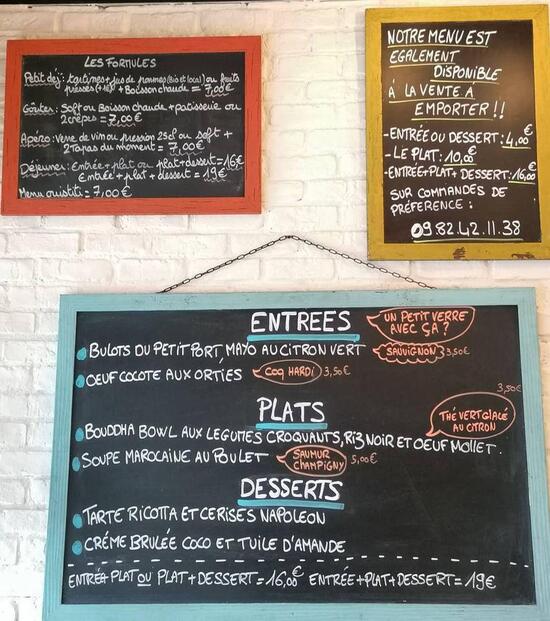 LES FORMULES
Petit déj: tartines + jus de pommes (Bio et local) ou fruits
pressés (+1€) + Boisson chaude = 7,00€
Goûter: Soft ou Boisson chaude + patisserie ou
2 crêpes = 7,00€
Apéro: Verre de vin ou pression 25cl ou soft +
2 Tapas du moment = 7,00€
Déjeuner: Entrée + plat ou plat + dessert = 16€
Entrée + plat + dessert = 19€
Menu ouistiti = 7,00€
NOTRE MENU EST
EGALEMENT
DISPONIBLE
À LA VENTE A
EMPORTER !!
- ENTRÉE OU DESSERT: 4,00€
- LE PLAT: 10,00€
- ENTRÉE + PLAT + DESSERT: 16,00€
SUR COMMANDES DE
PRÉFERENCE:
09.82.42.11.38
ENTREES
UN PETIT VERRE
AVEC ÇA ?
BULOTS DU PETIT PORT, MAYO AU CITRON VERT
SAUVIGNON 3,50€
OEUF COCOTE AUX ORTIES
COQ HARDI 3,50€
PLATS
3,50€
THÉ VERT GLACÉ
AU CITRON
BOUDDHA BOWL AUX LEGUMES CROQUANTS, RIZ NOIR ET OEUF MOLLET.
SOUPE MAROCAINE AU POULET
SAUMUR
CHAMPIGNY 5,00€
DESSERTS
TARTE RICOTTA ET CERISES NAPOLEON
CRÉME BRULÉE COCO ET TUILE D'AMANDE
ENTRÉE+ PLAT OU PLAT + DESSERT = 16,00€ ENTRÉE + PLAT + DESSERT = 19€